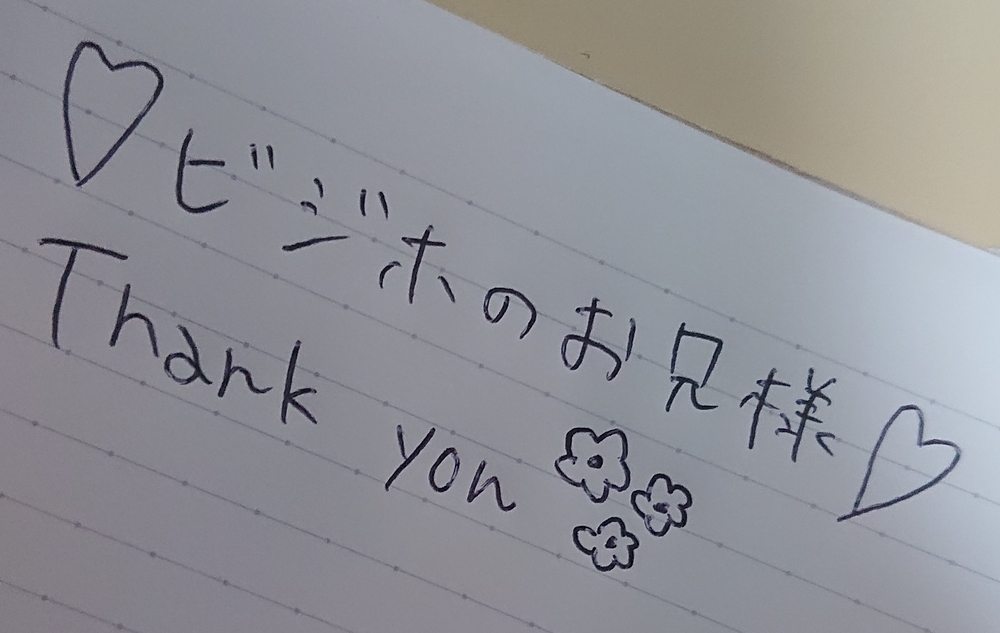 ♡ビジホのお兄様♡
Thank you